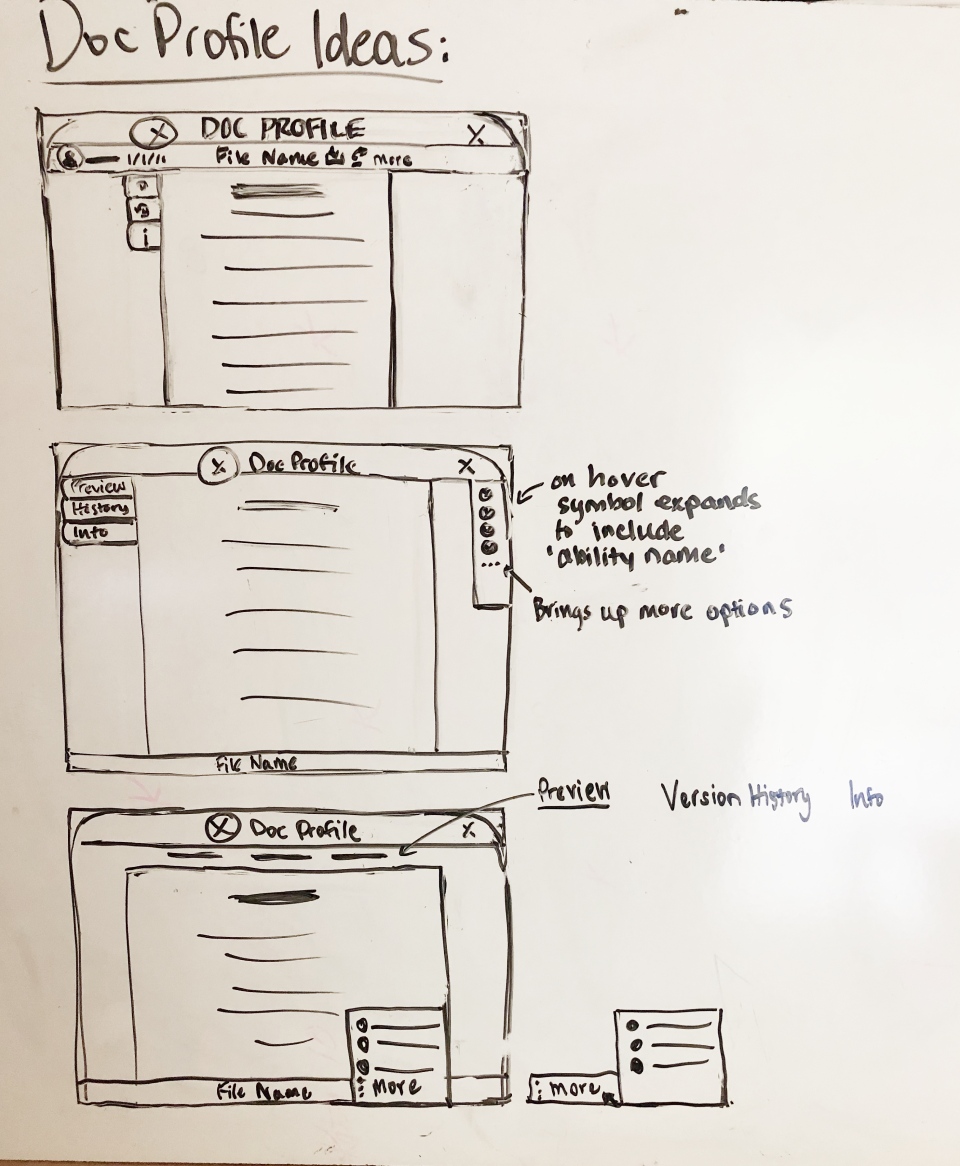 Doc Profile Ideas:
X DOC PROFILE X
1/1/11 File Name More
i
X Doc Profile X
Preview
History
Info
on hover
symbol expands
to include
'ability name'
...
Brings up more options
File Name
Preview Version History Info
X Doc Profile X
File Name
More
More